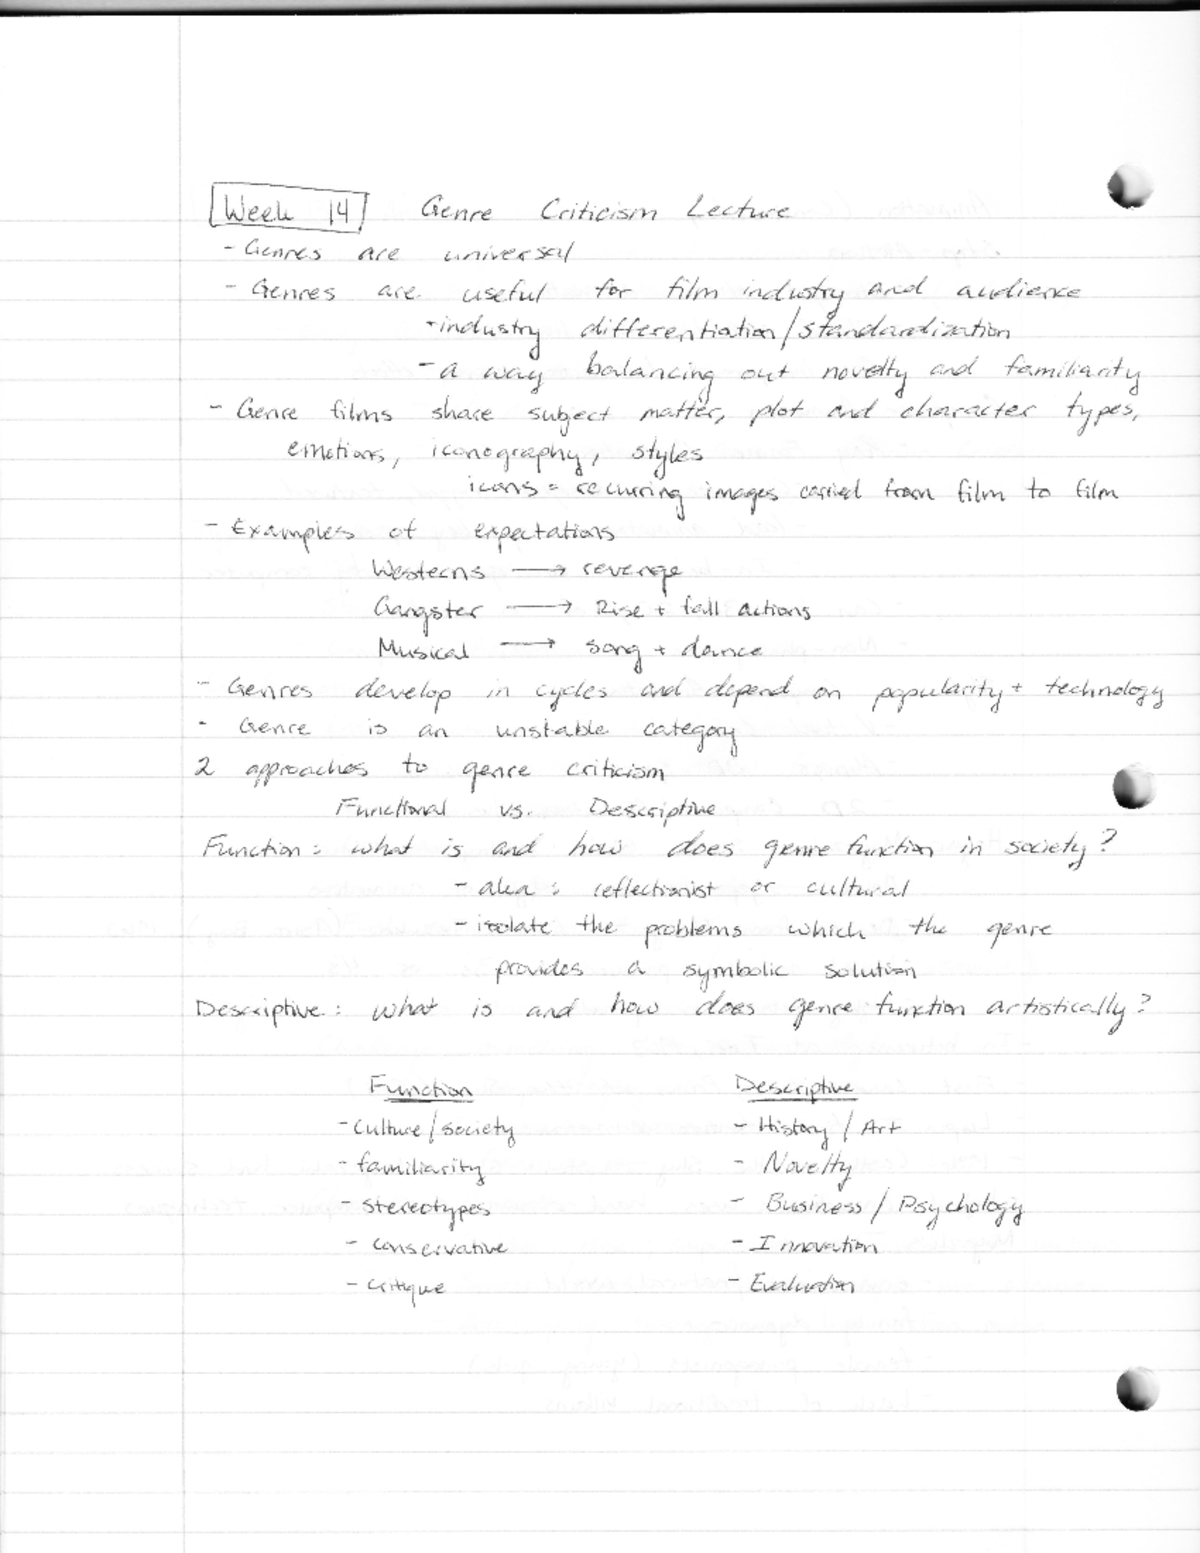 Week 14 Genre Criticism Lecture
- Genres are universal
- Genres are useful for film industry and audience
- industry differentiation/standardization
- a way balancing out novelty and familiarity
- Genre films share subject matter, plot and character types,
emotions, iconography, styles
icons = recurring images carried from film to film
- Examples of expectations
Westerns → revenge
Gangster → Rise + fall actions
Musical → song + dance
- Genres develop in cycles and depend on popularity + technology
- Genre is an unstable category
2 approaches to genre criticism
Functional vs. Descriptive
Function: what is and how does genre function in society?
- aka: reflectionist or cultural
- isolate the problems which the genre
provides a symbolic solution
Descriptive: what is and how does genre function artistically?
Function Descriptive
- Culture/society - History / Art
- familiarity - Novelty
- stereotypes - Business / Psychology
- conservative - Innovation
- critique - Evaluation